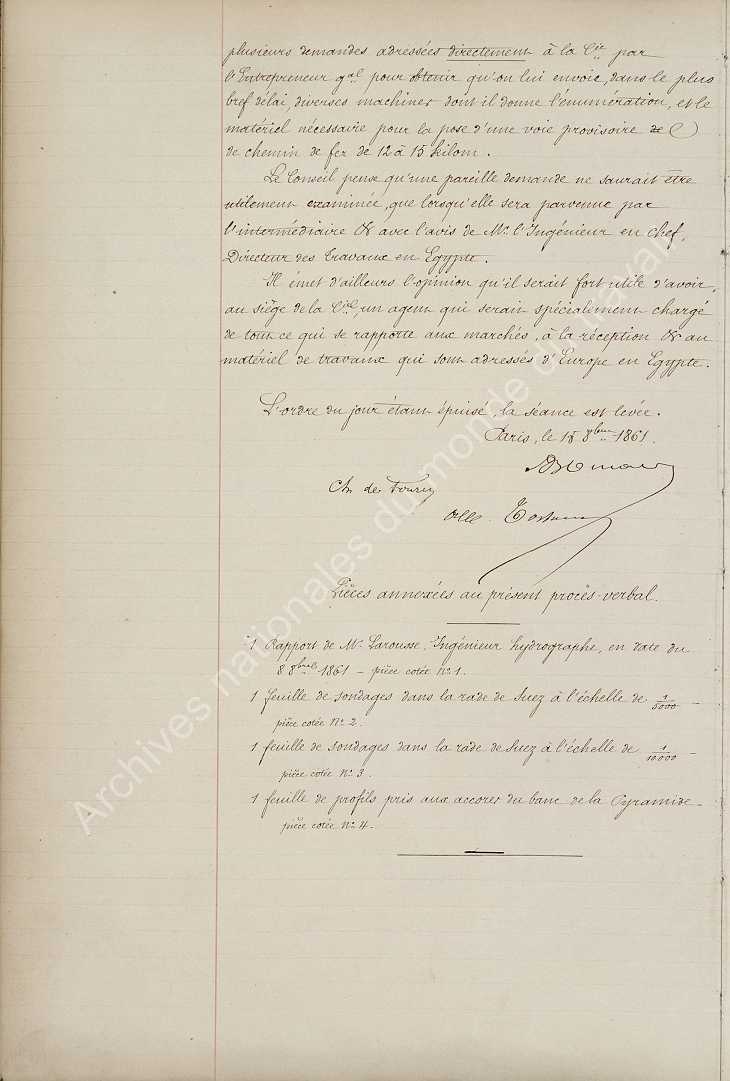 plusieurs demandes adressées directement à la Cie par
l'Entrepreneur gal pour obtenir qu'on lui envoie, dans le plus
bref délai, diverses machines dont il donne l'énumération, et le
matériel nécessaire pour la pose d'une voie provisoire de
de chemin de fer de 12 à 15 kilom.
Le Conseil pense qu'une pareille demande ne saurait être
utilement examinée, que lorsqu'elle sera parvenue par
l'intermédiaire & avec l'avis de Mr. l'Ingénieur en chef,
Directeur des travaux en Egypte.
Il émet d'ailleurs l'opinion qu'il serait fort utile d'avoir,
au siège de la Cie, un agent qui serait spécialement chargé
de tout ce qui se rapporte aux marchés, à la réception & au
matériel de travaux qui sont adressés d'Europe en Egypte.
L'ordre du jour étant épuisé, la séance est levée.
Paris, le 15 8bre 1861.
Ch de Fourcy
Pièces annexées au présent procès-verbal.
1 Rapport de Mr. Larousse, Ingénieur hydrographe, en date du
8 8bre 1861 - pièce cotée No. 1.
1 feuille de sondages dans la rade de Suez à l'échelle de 1/5000 -
pièce cotée No. 2.
1 feuille de sondages dans la rade de Suez à l'échelle de 1/10000 -
pièce cotée No. 3.
1 feuille de profils pris aux accores du banc de la Pyramide -
pièce cotée No. 4.
Archives nationales du monde du travail